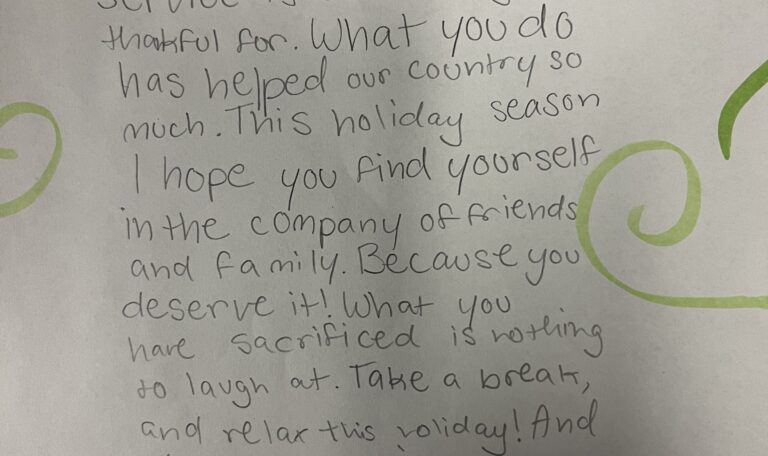 service is
thankful for. What you do
has helped our country so
much. This holiday season
I hope you find yourself
in the company of friends
and family. Because you
deserve it! What you
have sacrificed is nothing
to laugh at. Take a break,
and relax this holiday! And